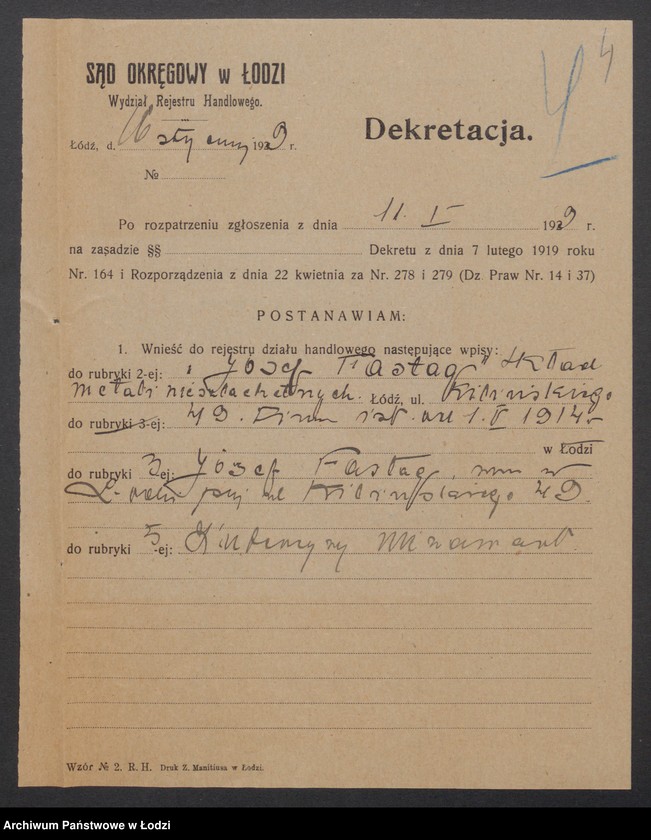 4
4
SĄD OKRĘGOWY w ŁODZI
Wydział Rejestru Handlowego.
Łódź, d. 16 stycznia 1929 r.
№
Dekretacja.
Po rozpatrzeniu zgłoszenia z dnia 11. I 1929 r.
na zasadzie §§ Dekretu z dnia 7 lutego 1919 roku
Nr. 164 i Rozporządzenia z dnia 22 kwietnia za Nr. 278 i 279 (Dz. Praw Nr. 14 i 37)
POSTANAWIAM:
1. Wnieść do rejestru działu handlowego następujące wpisy:
do rubryki 2-ej: „Józef Fastag" skład
metali nieszlachetnych. Łódź, ul. Kilińskiego
do rubryki 3-ej: 49. Firma ist. od 1. 1914 r.
w Łodzi
do rubryki 3 ej: Józef Fastag, zam w
Łodzi przy ul Kilińskiego 49.
do rubryki 5 -ej:
Wzór № 2. R. H. Druk Z. Manitiusa w Łodzi.
Archiwum Państwowe w Łodzi